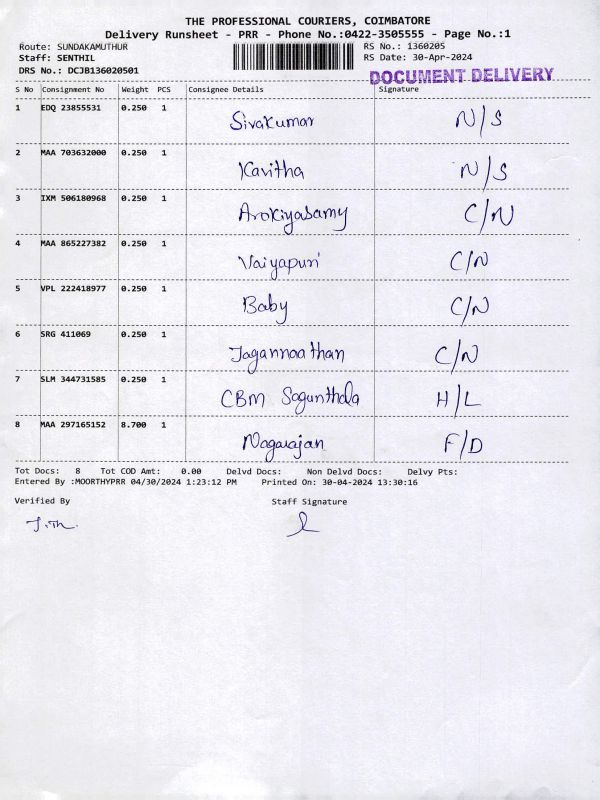 THE PROFESSIONAL COURIERS, COIMBATORE
Delivery Runsheet - PRR - Phone No.:0422-3505555 - Page No.:1
Route: SUNDAKAMUTHUR RS No.: 1360205
Staff: SENTHIL RS Date: 30-Apr-2024
DRS No.: DCJB136020501
DOCUMENT DELIVERY
S No Consignment No Weight PCS Consignee Details Signature
1 EDQ 23855531 0.250 1 Sivakumar N/S
2 MAA 703632000 0.250 1 Kavitha N/S
3 IXM 506180968 0.250 1 Arokiyasamy C/N
4 MAA 865227382 0.250 1 Vaiyapuri C/N
5 VPL 222418977 0.250 1 Baby C/N
6 SRG 411069 0.250 1 Jagannaathan C/N
7 SLM 344731585 0.250 1 CBM Sagunthala H/L
8 MAA 297165152 8.700 1 Nagarajan F/D
Tot Docs: 8 Tot COD Amt: 0.00 Delvd Docs: Non Delvd Docs: Delvy Pts:
Entered By :MOORTHYPRR 04/30/2024 1:23:12 PM Printed On: 30-04-2024 13:30:16
Verified By Staff Signature